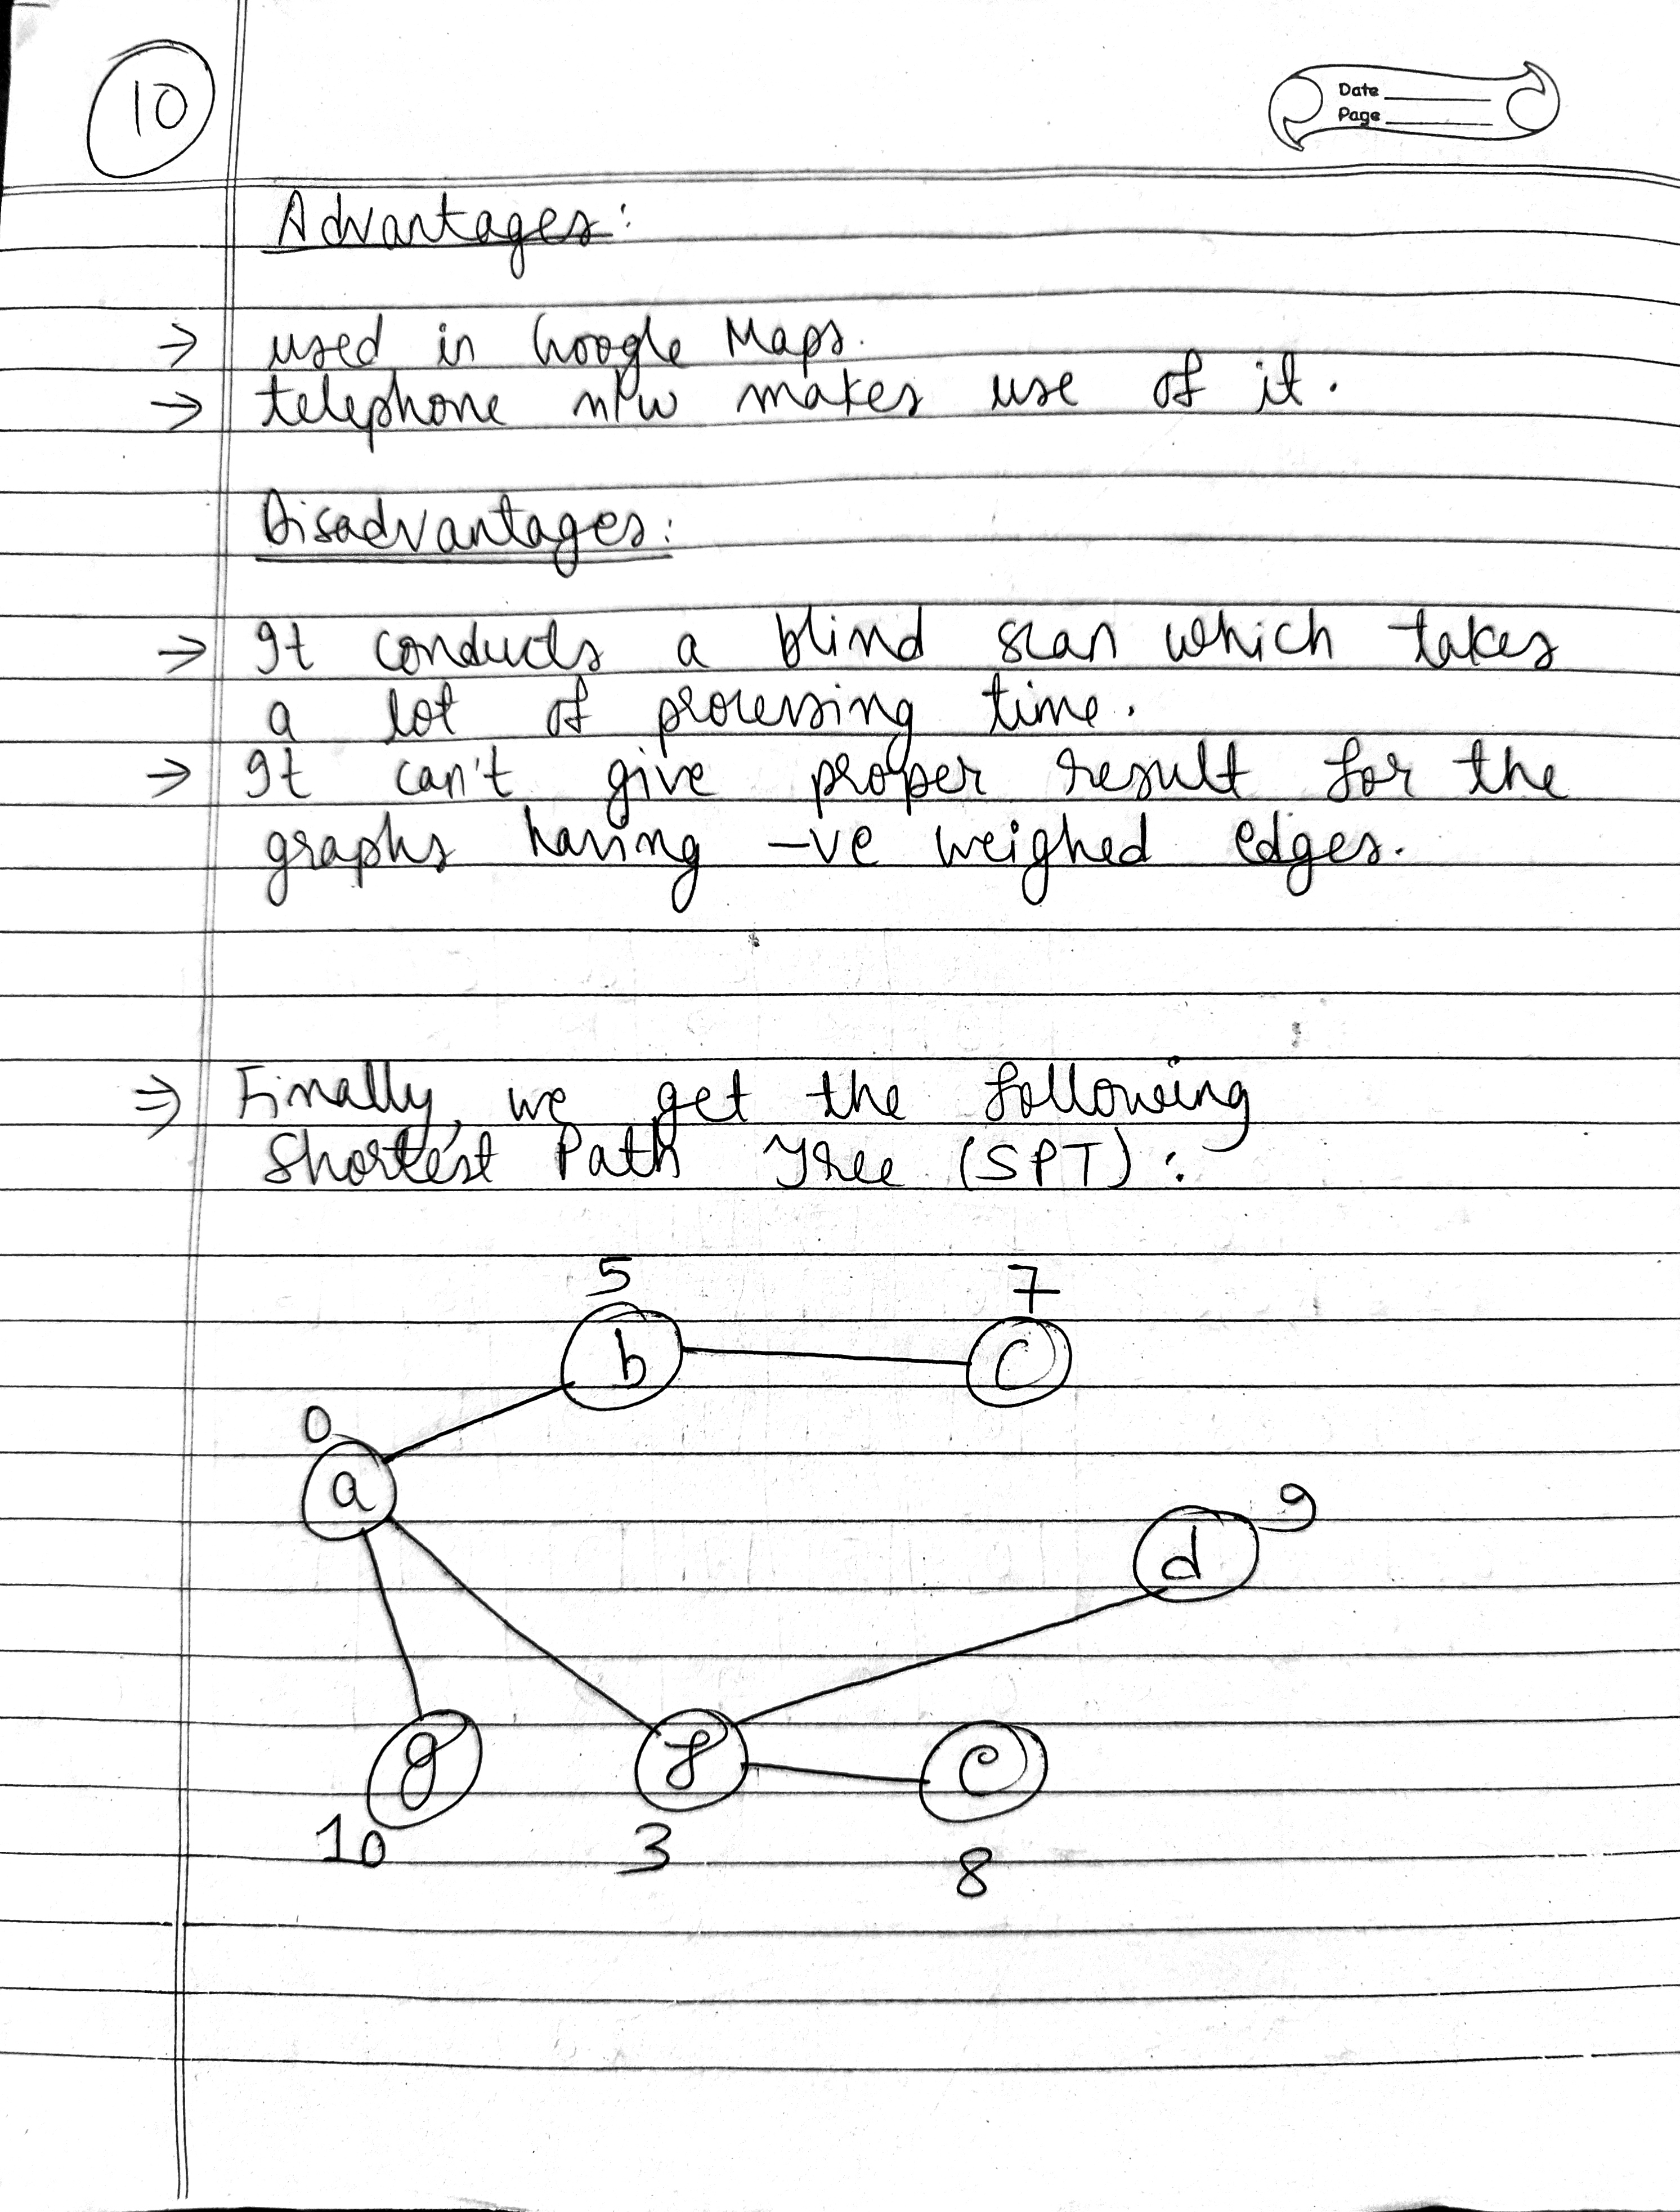 10
Date
Page
Advantages:
→ used in Google Maps.
→ telephone n/w makes use of it.
Disadvantages:
→ It conducts a blind scan which takes
a lot of processing time.
→ It can't give proper result for the
graphs having -ve weighed edges.
⇒ Finally, we get the following
Shortest Path Tree (SPT):
5 7
b c
0
a
9
d
g f e
10 3 8